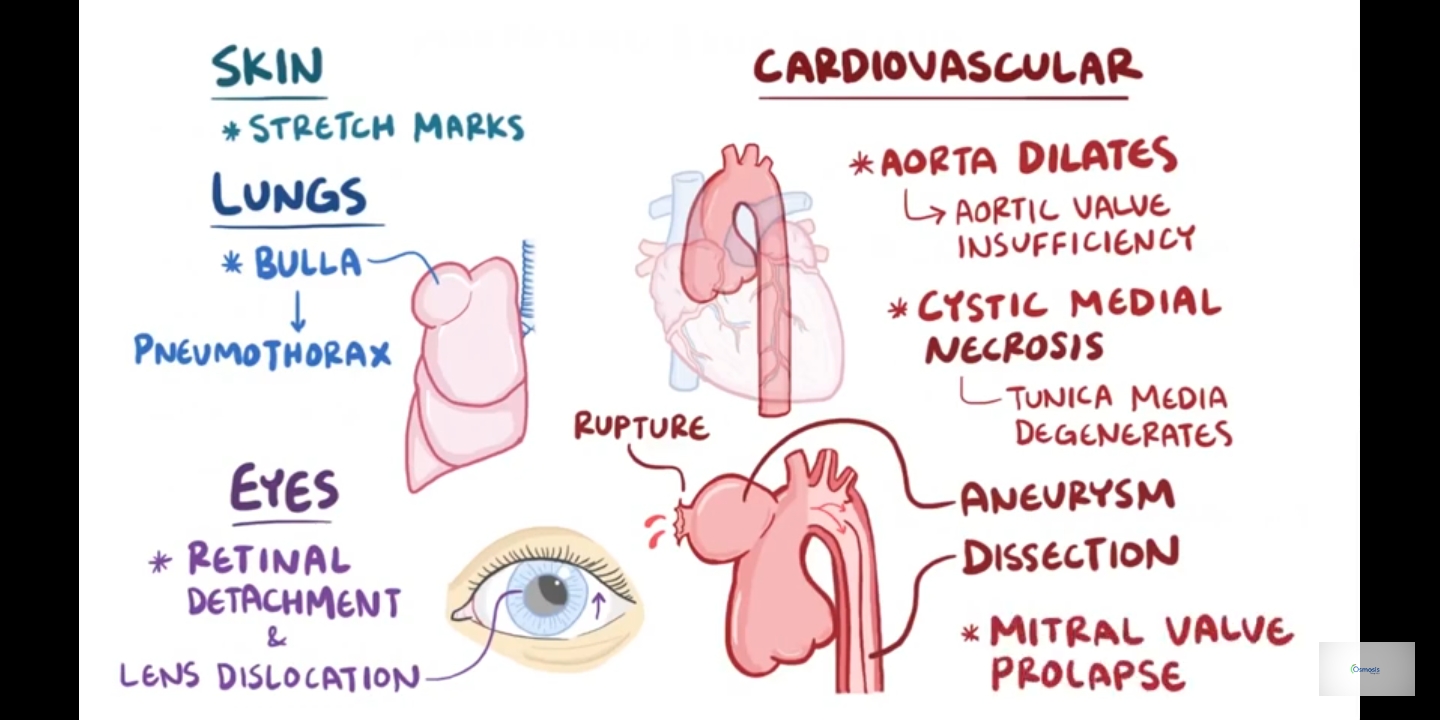 SKIN
* STRETCH MARKS
LUNGS
* BULLA
PNEUMOTHORAX
EYES
* RETINAL
DETACHMENT
&
LENS DISLOCATION
CARDIOVASCULAR
* AORTA DILATES
AORTIC VALVE
INSUFFICIENCY
* CYSTIC MEDIAL
NECROSIS
TUNICA MEDIA
DEGENERATES
RUPTURE
ANEURYSM
DISSECTION
* MITRAL VALVE
PROLAPSE
Osmosis